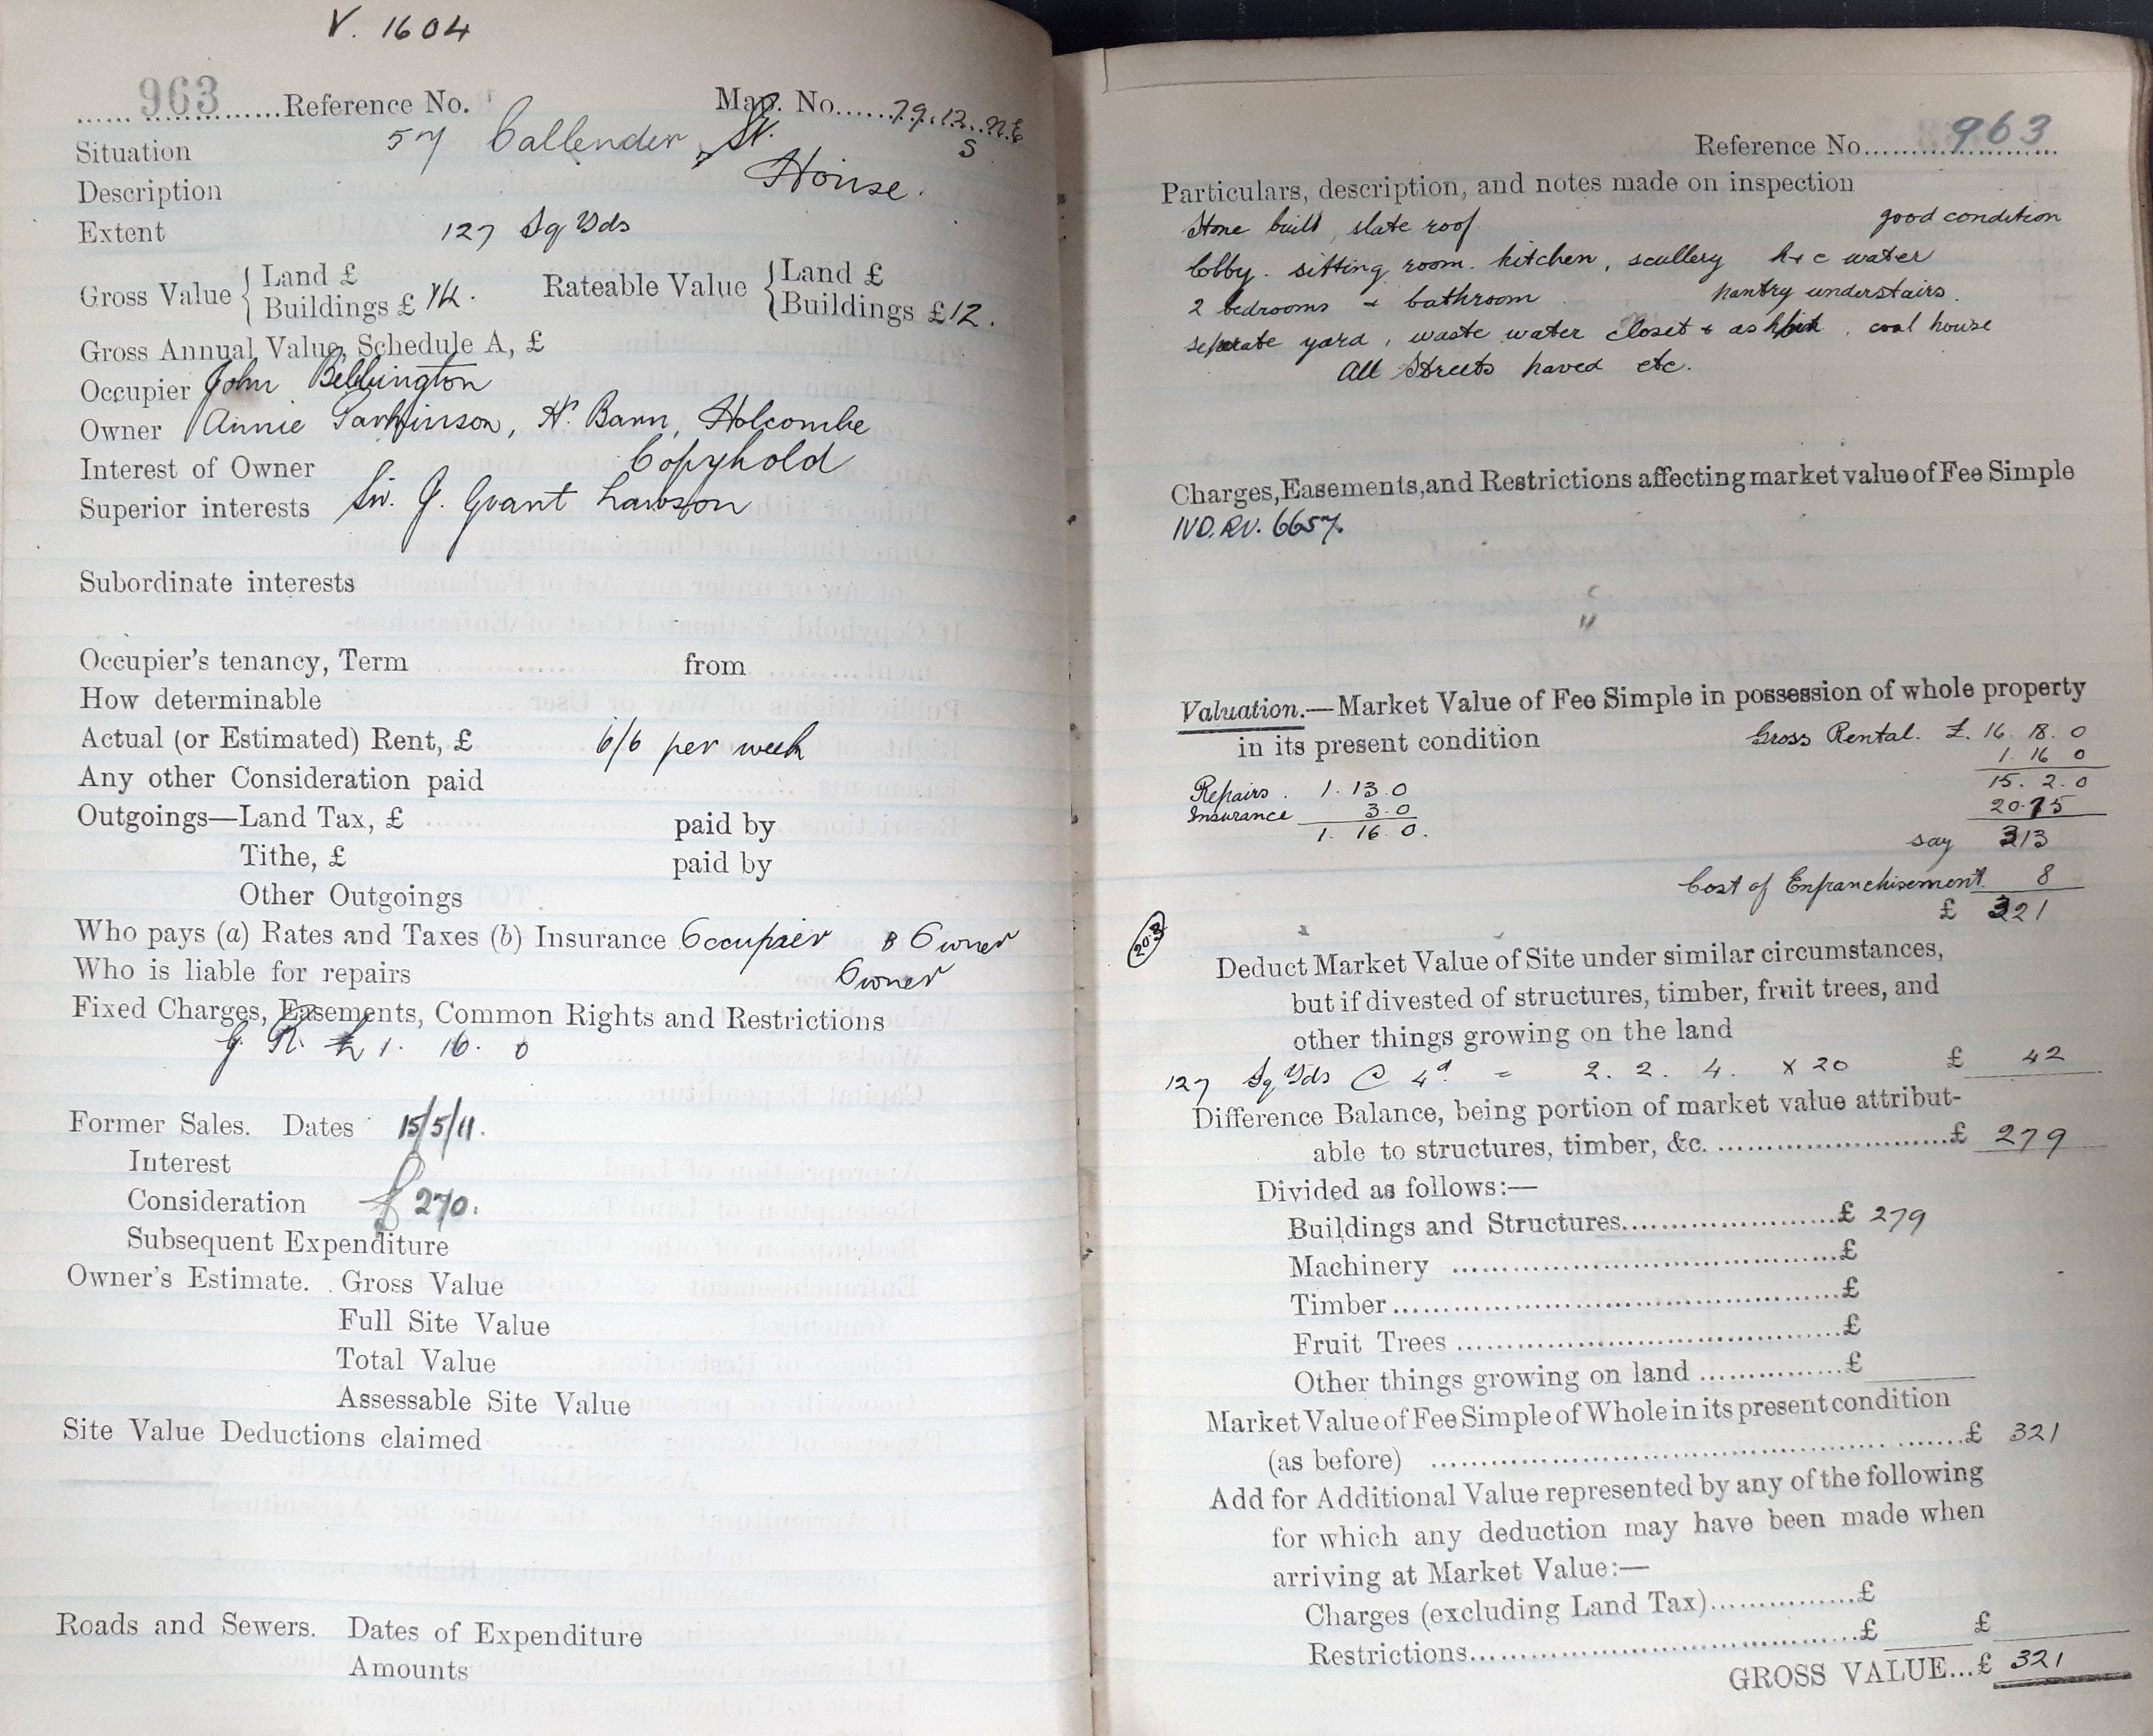 V. 1604
963 Reference No. Map. No. 79.12. N.E
S
Situation 57 Callender St.
Description House.
Extent 127 Sq Yds
Gross Value { Land £ Rateable Value { Land £
Buildings £ 14. Buildings £12.
Gross Annual Value, Schedule A, £
Occupier John Bebbington
Owner Annie Parkinson, Hr. Barn, Holcombe
Interest of Owner Copyhold
Superior interests Sir. J. Grant Lawson
Subordinate interests
Occupier's tenancy, Term from
How determinable
Actual (or Estimated) Rent, £ 6/6 per week
Any other Consideration paid
Outgoings—Land Tax, £ paid by
Tithe, £ paid by
Other Outgoings
Who pays (a) Rates and Taxes (b) Insurance Occupier B Owner
Who is liable for repairs Owner
Fixed Charges, Easements, Common Rights and Restrictions
G R. £1. 16. 0
Former Sales. Dates 15/5/11.
Interest
Consideration £270.
Subsequent Expenditure
Owner's Estimate. Gross Value
Full Site Value
Total Value
Assessable Site Value
Site Value Deductions claimed
Roads and Sewers. Dates of Expenditure
Amounts
Reference No. 963
Particulars, description, and notes made on inspection
Stone built, slate roof. good condition
lobby. sitting room. kitchen, scullery h + c water
2 bedrooms + bathroom pantry understairs.
separate yard, waste water closet + ashpit, coal house
All Streets paved etc.
Charges, Easements, and Restrictions affecting market value of Fee Simple
IVD. RV. 6657.
Valuation.—Market Value of Fee Simple in possession of whole property
in its present condition Gross Rental. £. 16. 18. 0
1. 16 0
Repairs. 1. 13. 0 15. 2. 0
Insurance 3. 0 20.75
1. 16. 0. say 313
Cost of Enfranchisement 8
£ 321
20.3
Deduct Market Value of Site under similar circumstances,
but if divested of structures, timber, fruit trees, and
other things growing on the land
127 Sq Yds @ 4d. = 2. 2. 4. x 20 £ 42
Difference Balance, being portion of market value attribut-
able to structures, timber, &c. £ 279
Divided as follows:—
Buildings and Structures £ 279
Machinery £
Timber £
Fruit Trees £
Other things growing on land £
Market Value of Fee Simple of Whole in its present condition
(as before) £ 321
Add for Additional Value represented by any of the following
for which any deduction may have been made when
arriving at Market Value:—
Charges (excluding Land Tax) £
Restrictions £ £
GROSS VALUE...£ 321